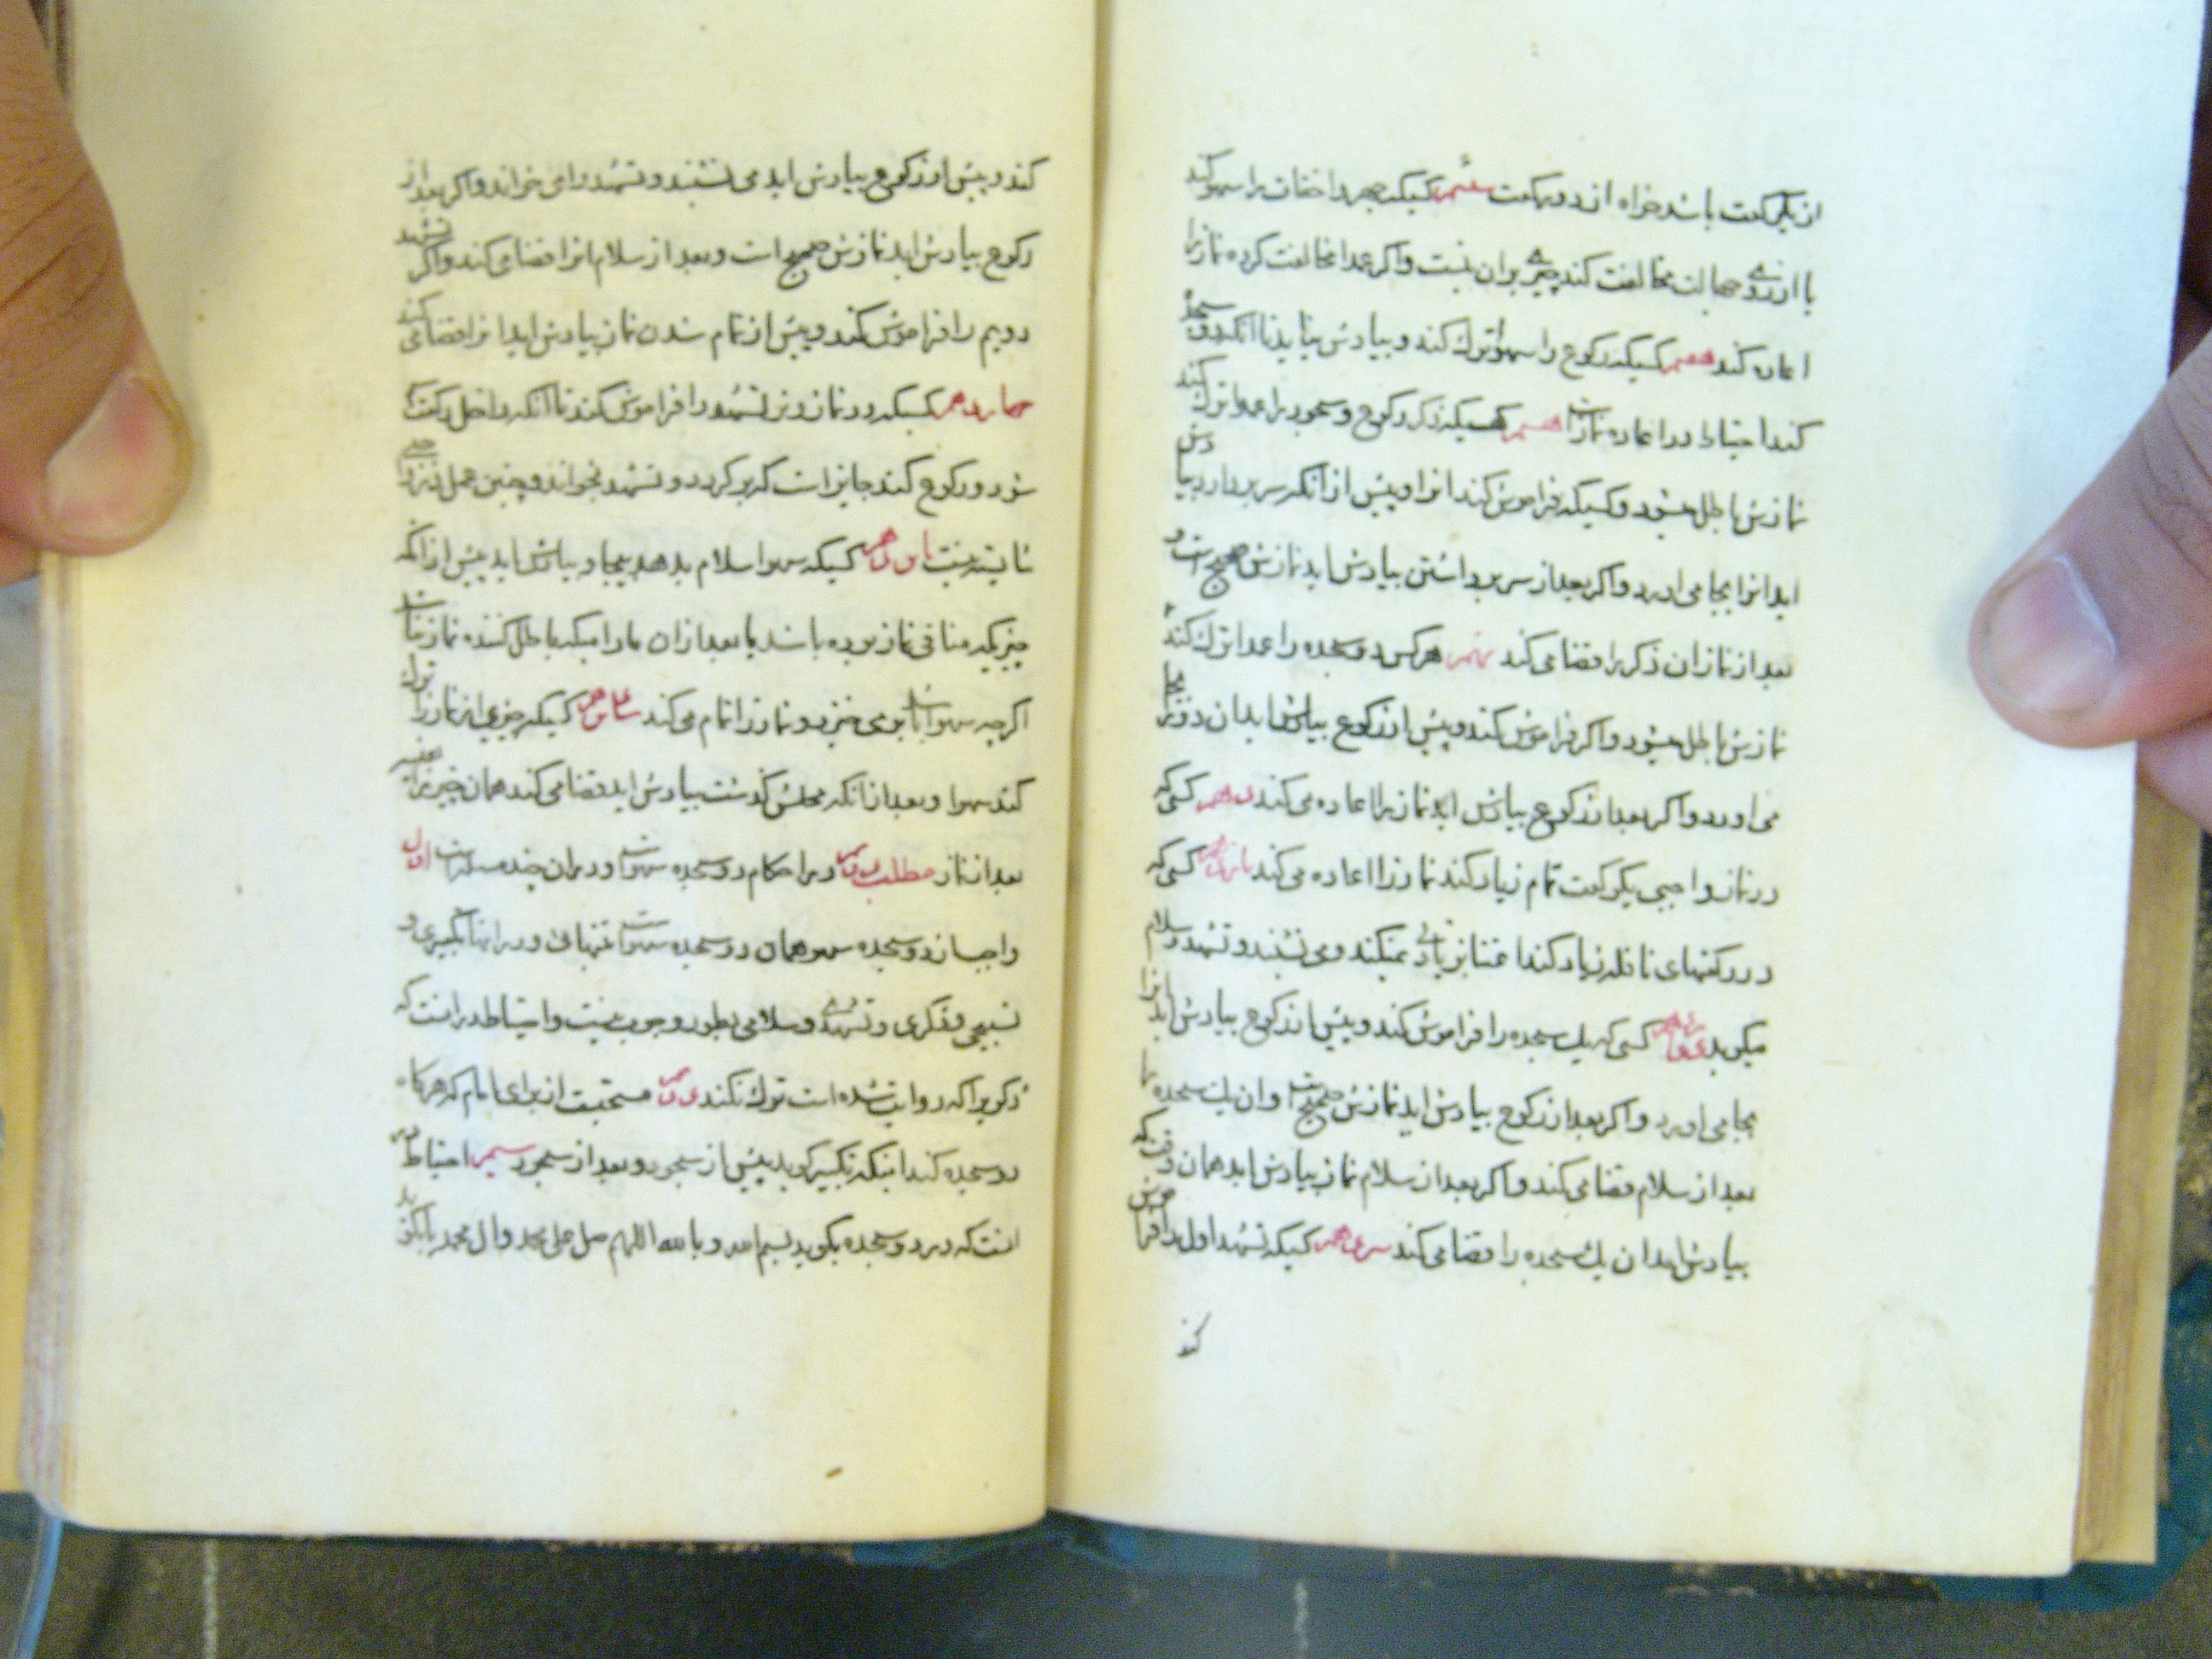 از یکرکعت باشد خواه از دو رکعت ششم کسیکه جهر و اخفات را سهو کند
یا از روی جهالت مخالفت کند چیزی بران نیست و اکر عمدا مخالفت کرده نماز را
اعاده کند هفتم کسیکه رکوع را سهوا ترك کند و بیادش نیاید تا انکه دو سجده
کند احتیاط در اعاده نماز است هشتم کسیکه ذکر رکوع و سجود را عمدا ترك کند
نمازش باطل میشود و کسیکه فراموش کند انرا و پیش از انکه سر بردارد بیادش
اید انرا بجا می اورد و اکر بعد از سر برداشتن بیادش اید نمازش صحیح است و
بعد از نماز ان ذکر را قضا می کند نهم هر کس دو سجده را عمدا ترك کند
نمازش باطل میشود و اکر فراموش کند و پیش از رکوع بیادش اید ان دو را بجا
می اورد و اکر بعد از رکوع بیادش اید نماز را اعاده می کند دهم کسی که
در نماز واجبی یکرکعت تمام زیاد کند نماز را اعاده می کند یازدهم کسی که
در رکعتهای نافله زیاد کند اعتنا بزیادتی نمیکند و می نشیند و تشهد و سلام
میکوید دوازدهم کسی که یك سجده را فراموش کند و پیش از رکوع بیادش اید انرا
بجا می اورد و اکر بعد از رکوع بیادش اید نمازش صحیح است و ان یك سجده را
بعد از سلام قضا می کند و اکر بعد از سلام نماز بیادش اید همان وقت که
بیادش اید ان یك سجده را قضا می کند سیزدهم کسیکه تشهد اول را فراموش
کند
کند و پیش از رکوع بیادش اید می نشیند و تشهد را می خواند و اکر بعد از
رکوع بیادش اید نمازش صحیح است و بعد از سلام انرا قضا می کند و اکر تشهد
دویم را فراموش کند و پیش از تمام شدن نماز بیادش اید انرا قضا می کند
چهاردهم کسیکه در نماز وتر تشهد را فراموش کند تا انکه داخل رکعت
شود و رکوع کند جایز است که برکردد و تشهد بخواند و چنین عمل نزد
شایسته نیست پانزدهم کسیکه سهوا سلام بدهد بیجا و بیادش اید پیش از انکه
چیزیکه منافی نماز بوده باشد یا بعد از ان مادامیکه باطل کننده نماز نباشد
اکرچه سهوا باشد برمی خیزد و نماز را تمام می کند شانزدهم کسیکه جزوی از نماز را ترك
کند سهوا و بعد از انکه محلش کذشت بیادش اید قضا می کند همان چیز را
بعد از نماز مطلب دویم در احکام دو سجده سهو است و در ان چند مسئله است اول
واجب از دو سجده سهو همان دو سجده سهو است تنهائی و در انها تکبیری و
تسبیحی و ذکری و تشهدی و سلامی بطور وجوب نیست و احتیاط در انست که
ذکریرا که روایت شده است ترك نکند دویم مستحبست از برای امام که هرکاه
دو سجده کند اینکه تکبیر کوید پیش از سجود و بعد از سجود سیم احتیاط
انست که در دو سجده بکوید بسم الله و بالله اللهم صل علی محمد وال محمد یا بکوید